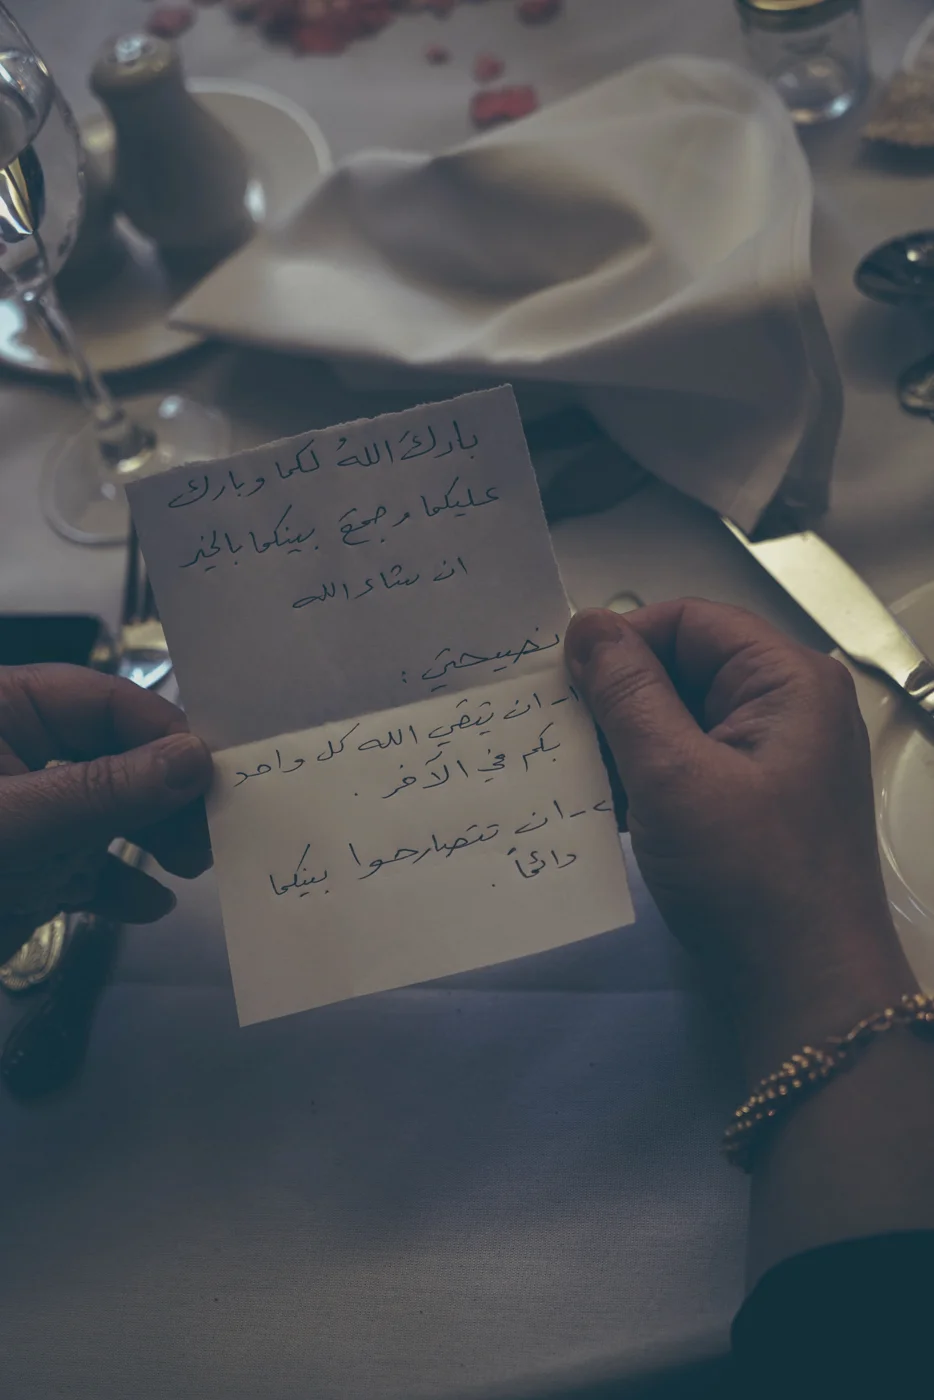 باركَ اللهُ لكما وبارك
عليكما وجمعَ بينكما بالخير
ان شاء الله
نصيحتي :
١- ان يتقي الله كل واحد
بكم في الآخر .
٢- ان تتصارحوا بينكما
دائماً .